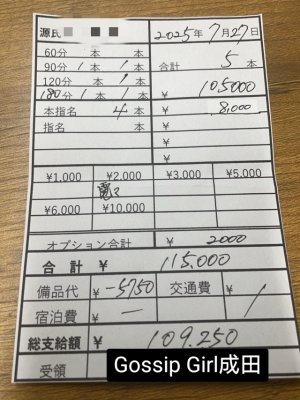 源氏
2025年7月27日
60分 本 本
90分 1本 1本
合計 5本
120分 本 1本
¥ 105000
180分 1本 1本
本指名 4本
¥ 8,000
指名 本
¥
¥
¥
¥1,000 ¥2,000 ¥3,000 ¥5,000
¥6,000 ¥10,000
オプション合計 ¥ 2000
合計 ¥ 115,000
備品代 ¥ -5750 交通費 ¥ /
宿泊費 ¥ —
総支給額 ¥ 109.250
受領
Gossip Girl成田